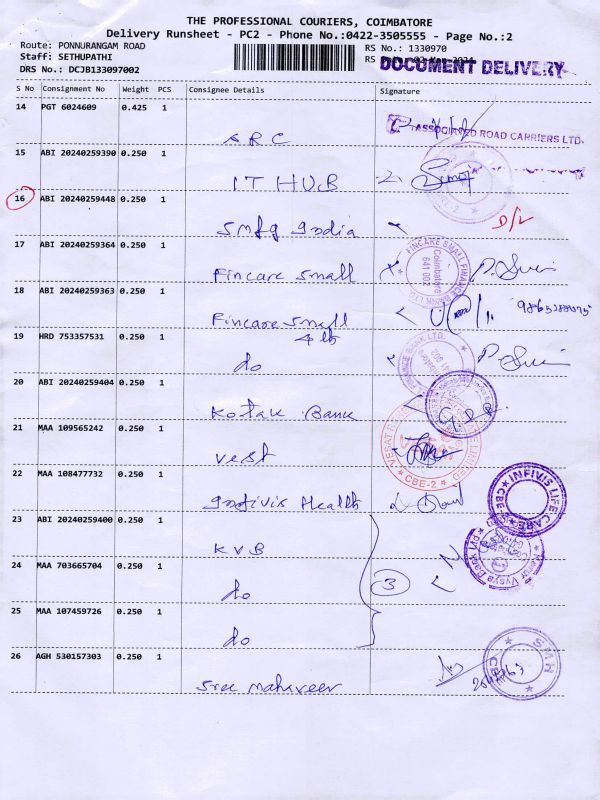 THE PROFESSIONAL COURIERS, COIMBATORE
Delivery Runsheet - PC2 - Phone No.:0422-3505555 - Page No.:2
Route: PONNURANGAM ROAD
RS No.: 1330970
Staff: SETHUPATHI
RS
DOCUMENT DELIVERY
DRS No.: DCJB133097002
S No Consignment No Weight PCS Consignee Details Signature
14 PGT 6024609 0.425 1
ARC
ASSOCIATED ROAD CARRIERS LTD.
15 ABI 20240259390 0.250 1
IT HUB
16 ABI 20240259448 0.250 1
Smfg India
D/L
17 ABI 20240259364 0.250 1
Fincare Small
FINCARE SMALL FINANCE BANK LTD
Coimbatore
641 002
18 ABI 20240259363 0.250 1
Fincare Small
19 HRD 753357531 0.250 1
do
20 ABI 20240259404 0.250 1
Kotak Bank
21 MAA 109565242 0.250 1
Vest
CBE-2
22 MAA 108477732 0.250 1
Infivis Health
INFIVIS LIFE CARE
CBE
23 ABI 20240259400 0.250 1
KVB
24 MAA 703665704 0.250 1
do
3
25 MAA 107459726 0.250 1
do
26 AGH 530157303 0.250 1
Sree Mahaveer
SMH